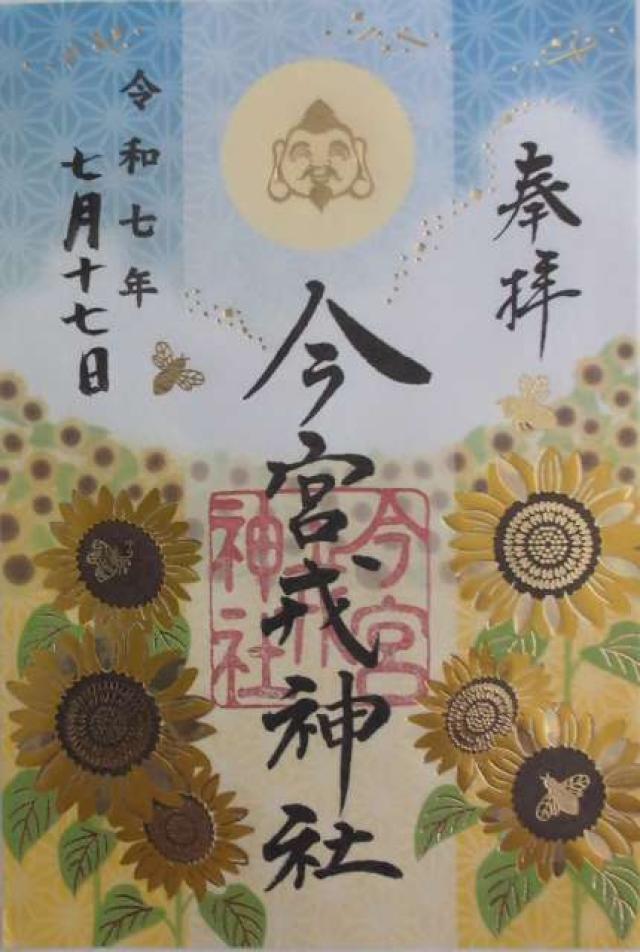 奉拝
今宮戎神社
令和七年
七月十七日
今宮
戎
神社